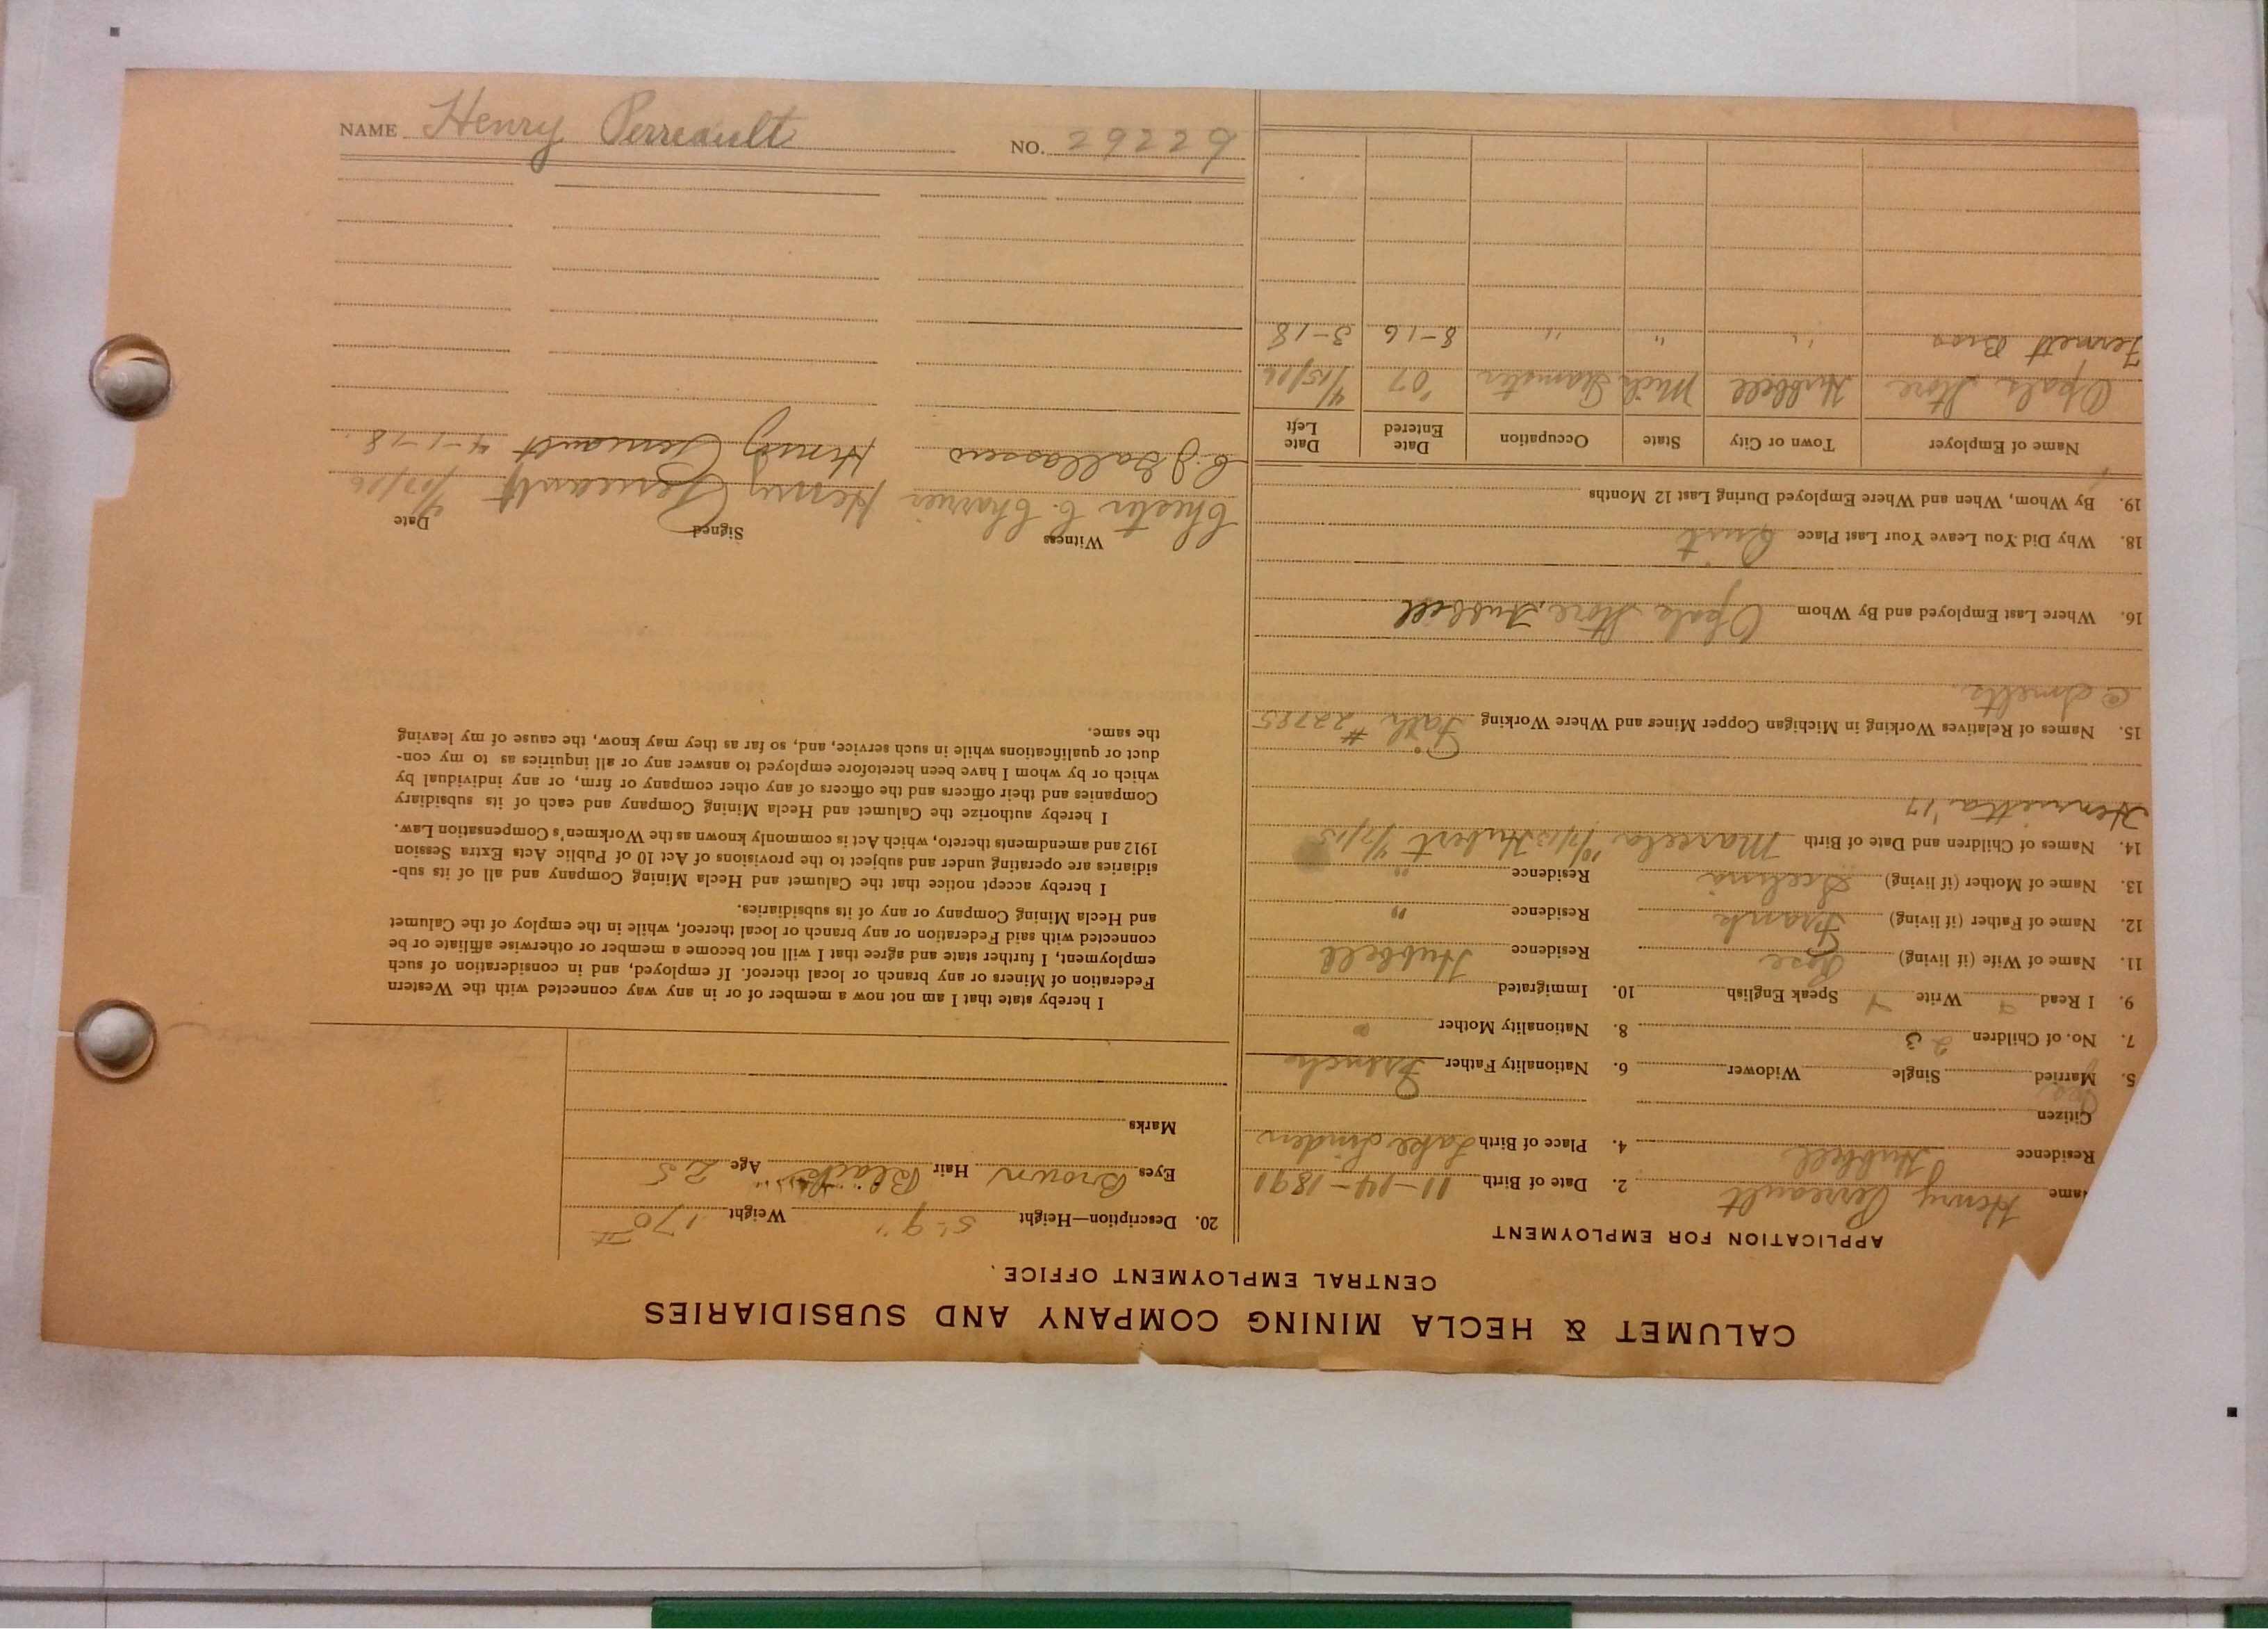 CALUMET & HECLA MINING COMPANY AND SUBSIDIARIES
CENTRAL EMPLOYMENT OFFICE.
APPLICATION FOR EMPLOYMENT
Name Henry Perreault 2. Date of Birth 11-14-1891
Residence Hubbell 4. Place of Birth Lake Linden
Citizen Yes
5. Married Single Widower 6. Nationality Father French
7. No. of Children 2 3 8. Nationality Mother "
9. I Read Y Write Y Speak English 10. Immigrated
11. Name of Wife (if living) Rose Residence Hubbell
12. Name of Father (if living) Frank Residence "
13. Name of Mother (if living) Residence "
14. Names of Children and Date of Birth Marcella Hubert 4/7/15
Henrietta '17
15. Names of Relatives Working in Michigan Copper Mines and Where Working Fath #22785
@ Smelts.
16. Where Last Employed and By Whom Opals Store, Hubbell
18. Why Did You Leave Your Last Place Quit
19. By Whom, When and Where Employed During Last 12 Months
Name of Employer Town or City State Occupation Date Entered Date Left
Opals Store Hubbell Mich Teamster '07 4/15/16
Bros " " " 8-16 3-18
20. Description—Height 5'-9" Weight 170#
Eyes Brown Hair Black Age 25
Marks
I hereby state that I am not now a member of or in any way connected with the Western
Federation of Miners or any branch or local thereof. If employed, and in consideration of such
employment, I further state and agree that I will not become a member or otherwise affiliate or be
connected with said Federation or any branch or local thereof, while in the employ of the Calumet
and Hecla Mining Company or any of its subsidiaries.
I hereby accept notice that the Calumet and Hecla Mining Company and all of its sub-
sidiaries are operating under and subject to the provisions of Act 10 of Public Acts Extra Session
1912 and amendments thereto, which Act is commonly known as the Workmen's Compensation Law.
I hereby authorize the Calumet and Hecla Mining Company and each of its subsidiary
Companies and their officers and the officers of any other company or firm, or any individual by
which or by whom I have been heretofore employed to answer any or all inquiries as to my con-
duct or qualifications while in such service, and, so far as they may know, the cause of my leaving
the same.
Witness Signed Date
Chester C. Charrier Henry Perreault
Henry Perreault 4-1-18.
NAME Henry Perreault NO. 29229